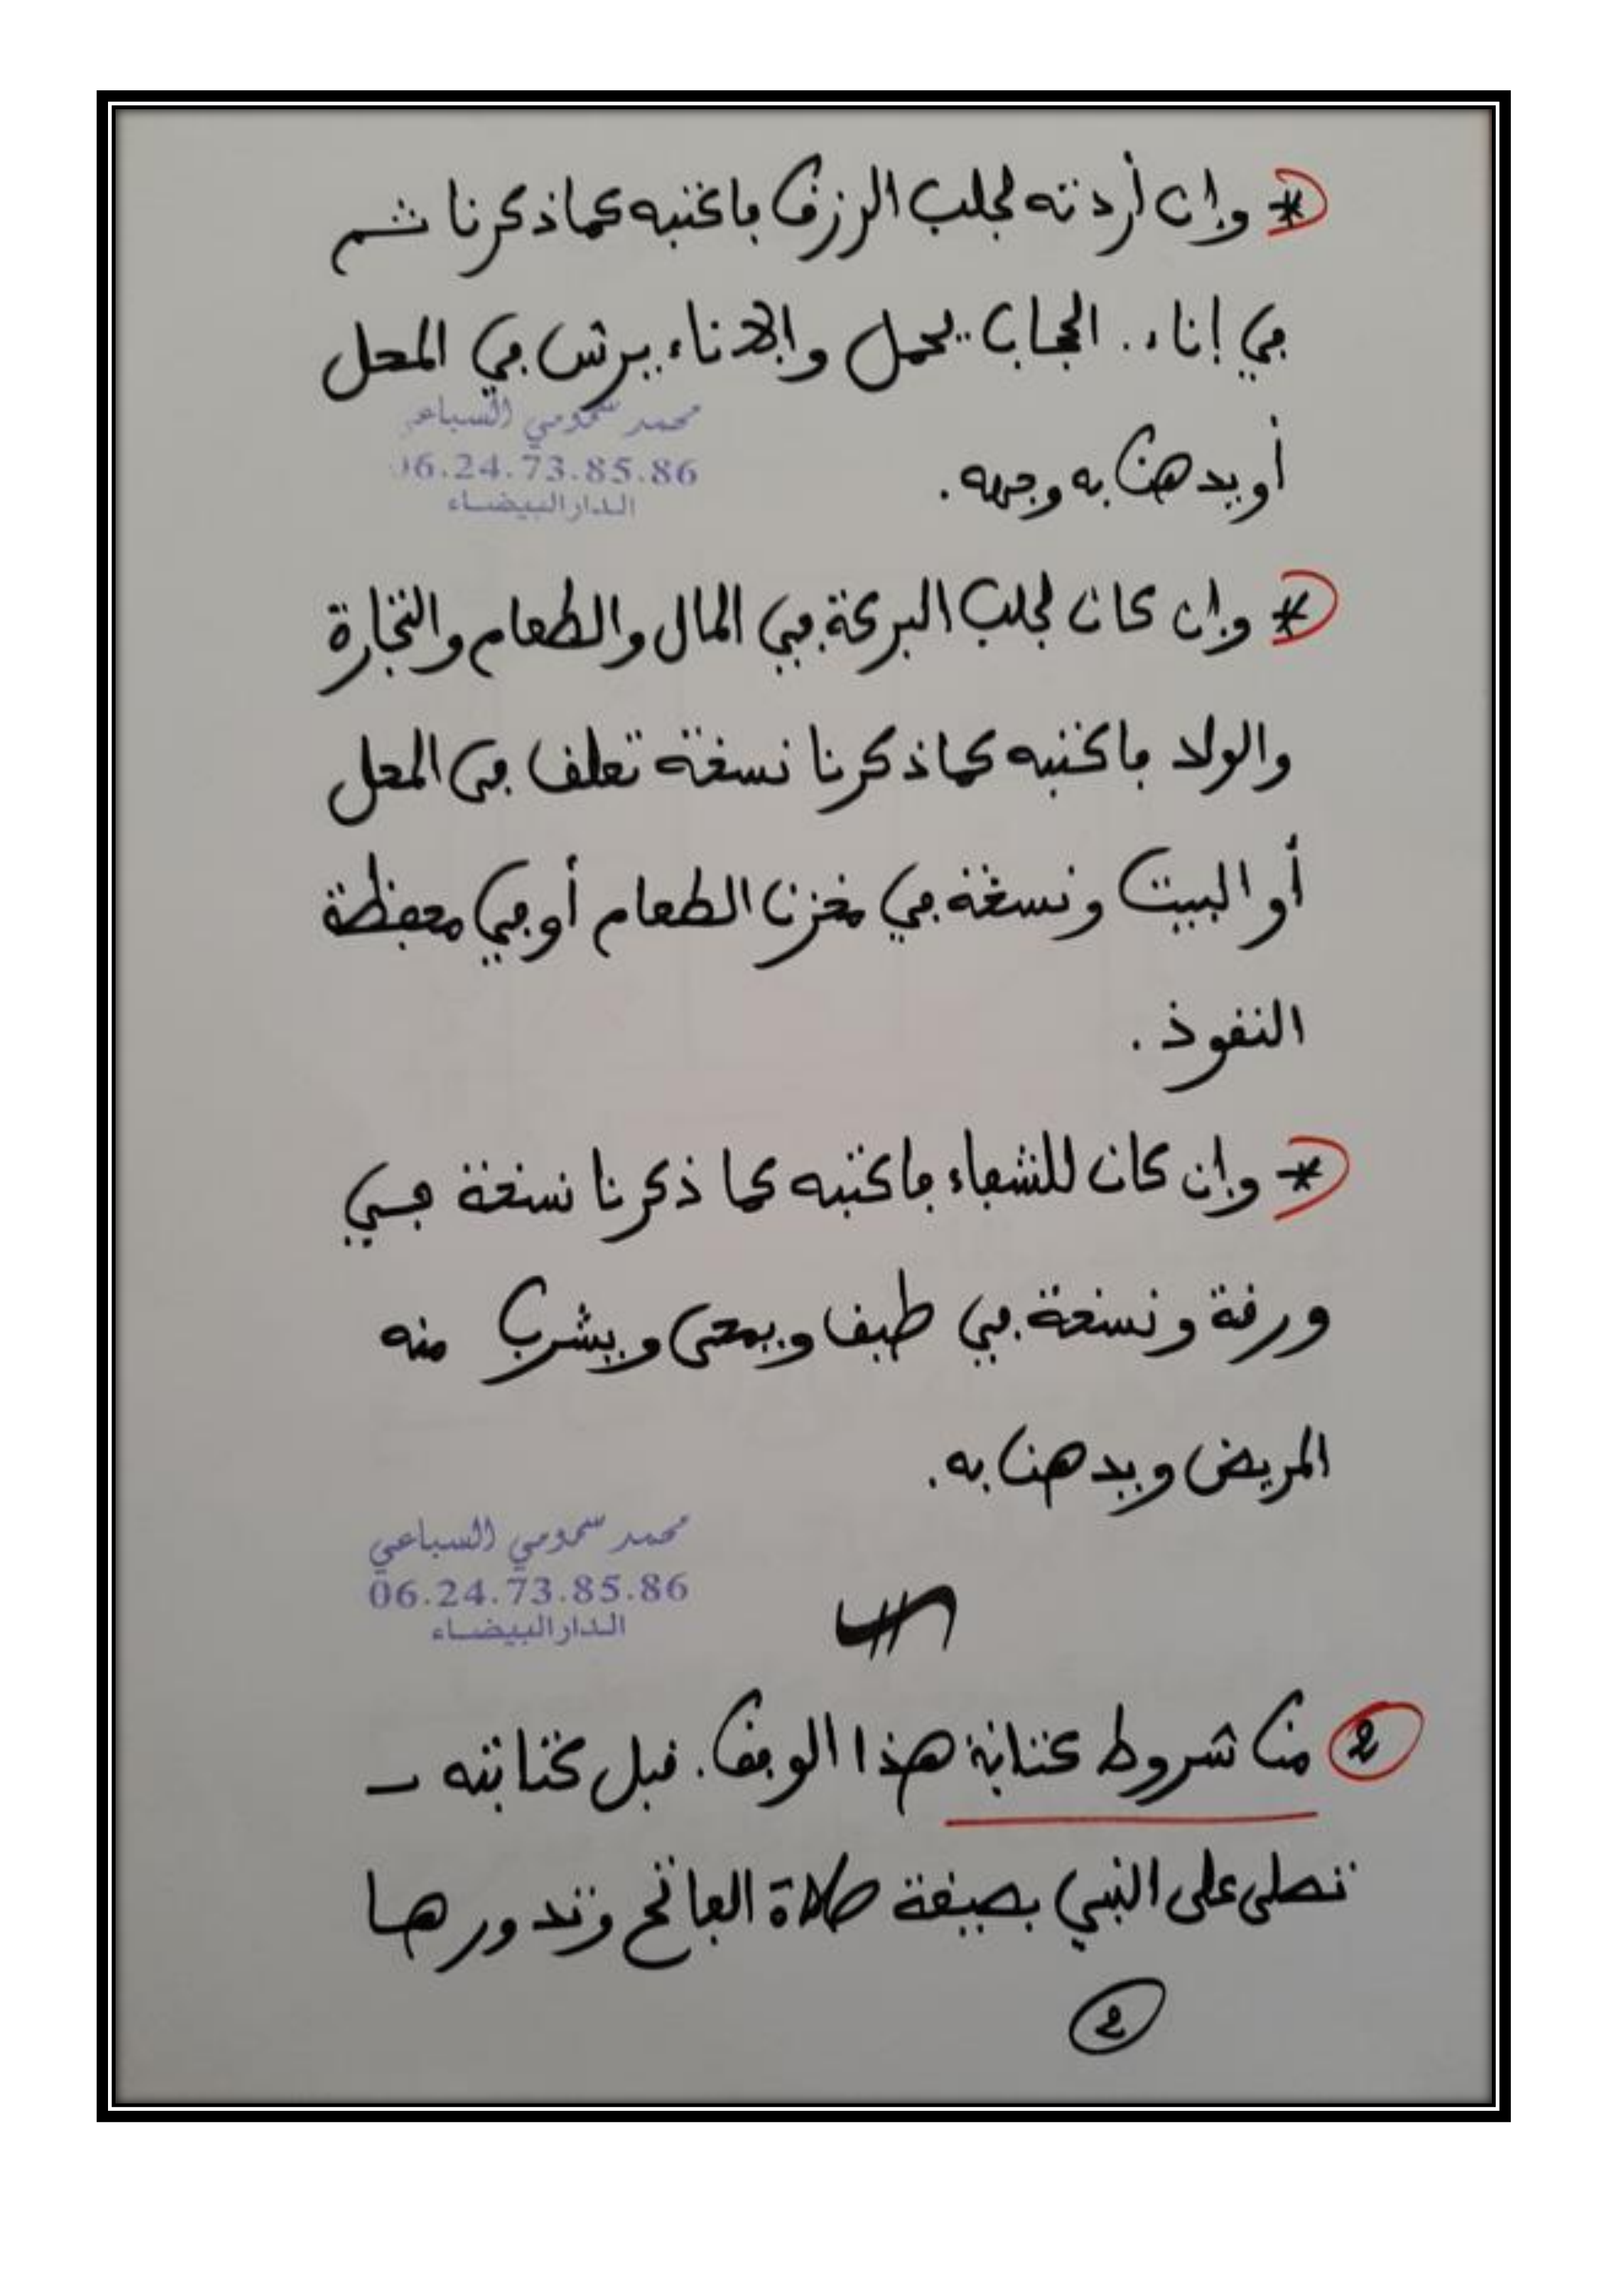 * وإن أردته لجلب الرزق فاكتبه كما ذكرنا ثم
في إناء . الحجاب يحمل والإناء يرش في المحل
محمد سحمومي السباعي
06.24.73.85.86
الدار البيضاء
أو يدهن به وجهه .
* وإن كان لجلب البركة في المال والطعام والتجارة
والولد فاكتبه كما ذكرنا نسخة تعلق في المحل
أو البيت ونسخة في مخزن الطعام أو في محفظة
النقوذ .
* وإن كان للشفاء فاكتبه كما ذكرنا نسخة في
ورقة ونسخة في طبق ويمحى ويشرب منه
المريض ويدهن به .
محمد سحمومي السباعي
06.24.73.85.86
الدار البيضاء
2 من شروط كتابة هذا الوفق . قبل كتابته -
تصلى على النبي بصيغة صلاة الفاتح وتدورها
2